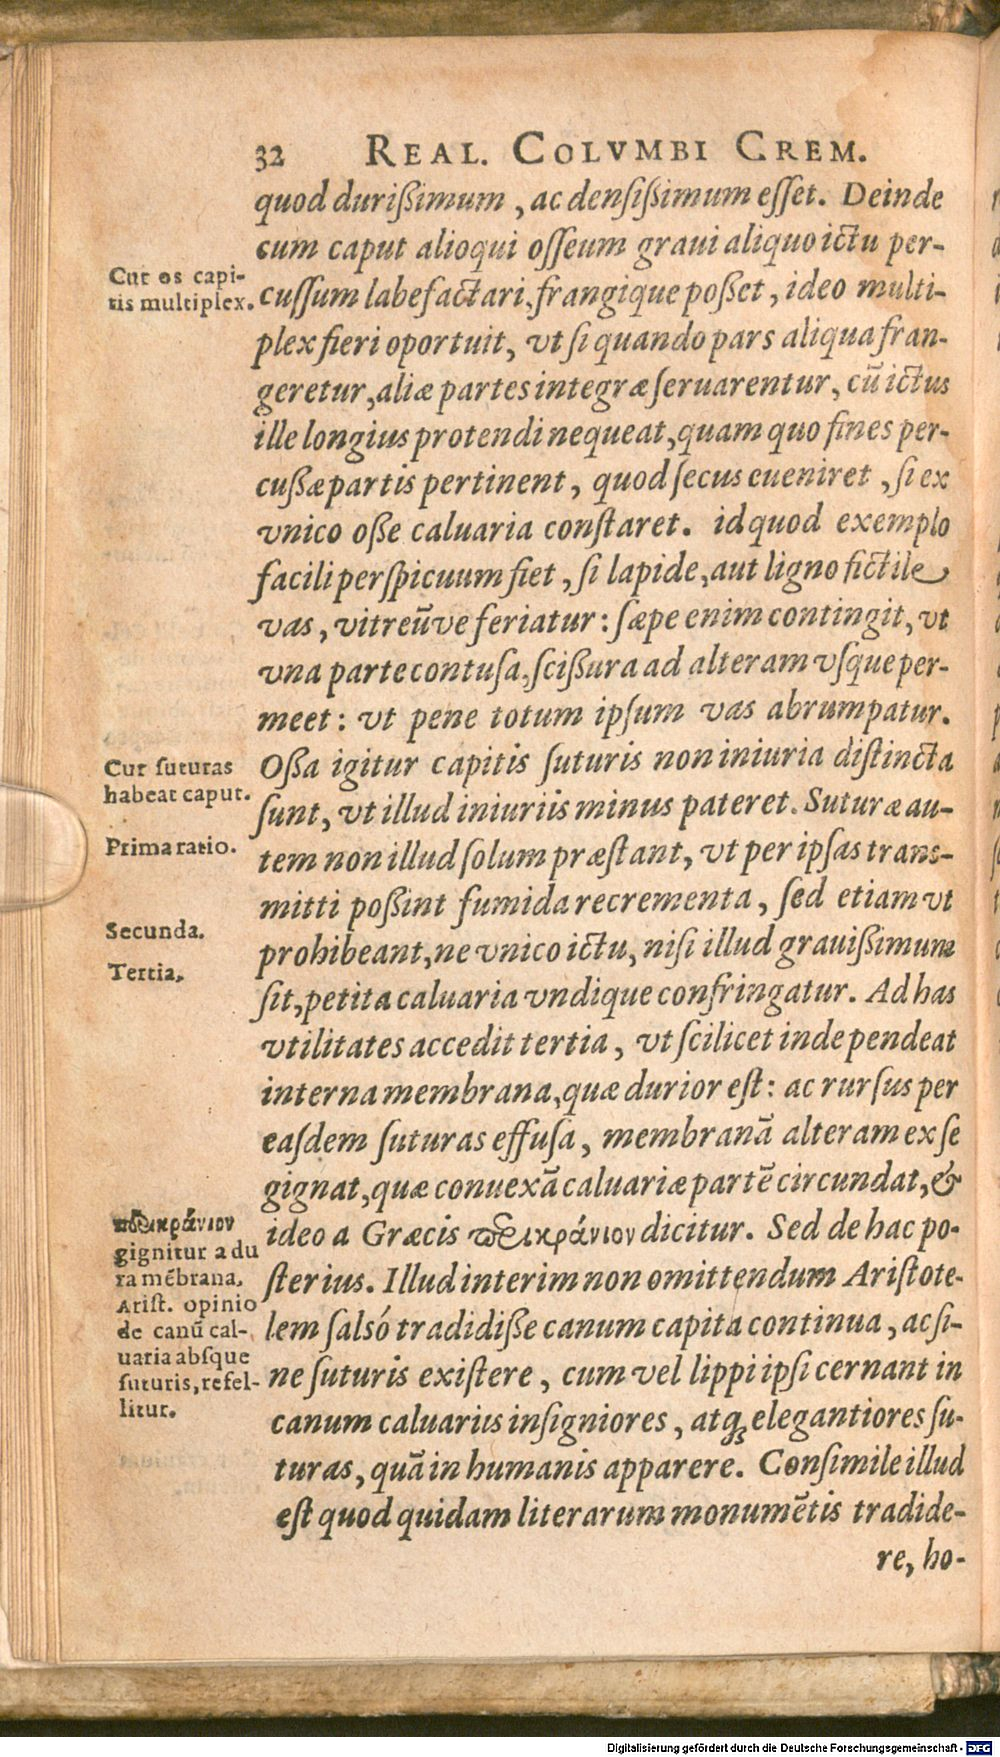 32 REAL. COLVMBI CREM.
quod durißimum, ac densißimum esset. Deinde
cum caput alioqui osseum graui aliquo ictu per-
Cur os capi-
tis multiplex.
cussum labefactari, frangique poßet, ideo multi-
plex fieri oportuit, vt si quando pars aliqua fran-
geretur, aliæ partes integræ seruarentur, cū ictus
ille longius protendi nequeat, quam quo fines per-
cußæ partis pertinent, quod secus eueniret, si ex
vnico oße caluaria constaret. id quod exemplo
facili perspicuum fiet, si lapide, aut ligno fictile
vas, vitreūve feriatur: sæpe enim contingit, vt
vna parte contusa, scißura ad alteram vsque per-
meet: vt pene totum ipsum vas abrumpatur.
Cur suturas
habeat caput.
Oßa igitur capitis suturis non iniuria distincta
sunt, vt illud iniuriis minus pateret. Suturæ au-
Prima ratio.
tem non illud solum præstant, vt per ipsas trans-
mitti poßint fumida recrementa, sed etiam vt
Secunda.
prohibeant, ne vnico ictu, nisi illud grauißimum
Tertia.
sit, petita caluaria vndique confringatur. Ad has
vtilitates accedit tertia, vt scilicet inde pendeat
interna membrana, quæ durior est: ac rursus per
easdem suturas effusa, membranā alteram ex se
gignat, quæ conuexā caluariæ partē circundat, &
περικράνιον
gignitur a du
ra mēbrana.
ideo a Græcis περικράνιον dicitur. Sed de hac po-
sterius. Illud interim non omittendum Aristote-
Arist. opinio
de canū cal-
uaria absque
suturis, refel-
litur.
lem salsó tradidiße canum capita continua, ac si-
ne suturis existere, cum vel lippi ipsi cernant in
canum caluariis insigniores, atq; elegantiores su-
turas, quā in humanis apparere. Consimile illud
est quod quidam literarum monumētis tradide-
re, ho-
Digitalisierung gefördert durch die Deutsche Forschungsgemeinschaft - DFG